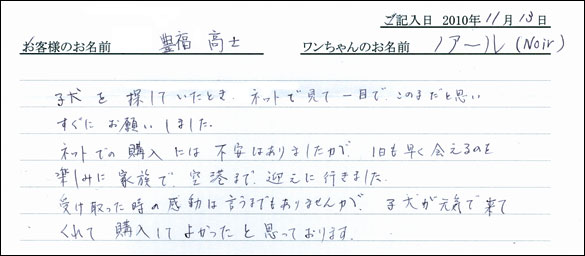 ご記入日 2010年11月13日
お客様のお名前 豊福 高士 ワンちゃんのお名前 ノアール(Noir)
子犬を探していたとき、ネットで見て一目で、このまだと思い
すぐにお願いしました。
ネットでの購入には不安はありましたが、1日も早く会えるのを
楽しみに家族で、空港まで、迎えに行きました。
受け取った時の感動は言うまでもありませんが、子犬が元気で来て
くれて購入してよかったと思っております。